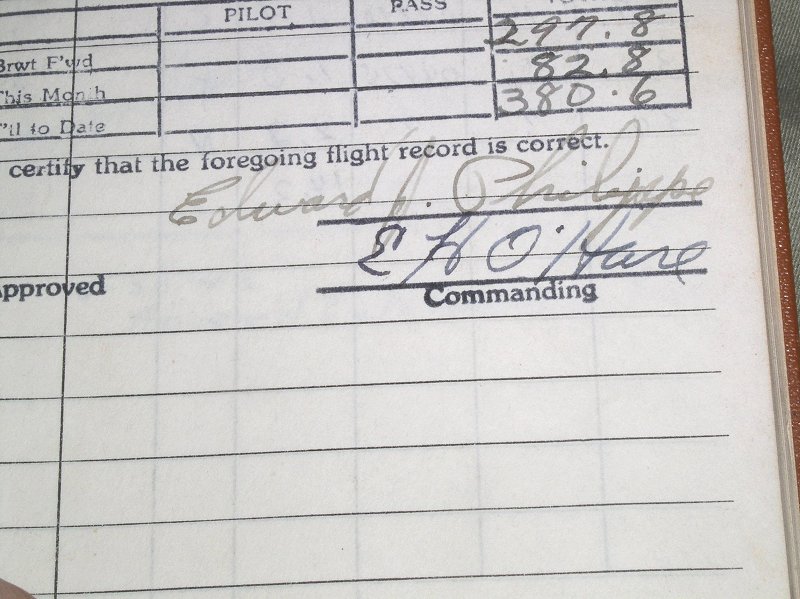 PILOT PASS
Brwt F'wd 297.8
This Month 82.8
T'tl to Date 380.6
certify that the foregoing flight record is correct.
Edward J. Philippe
E H O'Hare
Approved Commanding